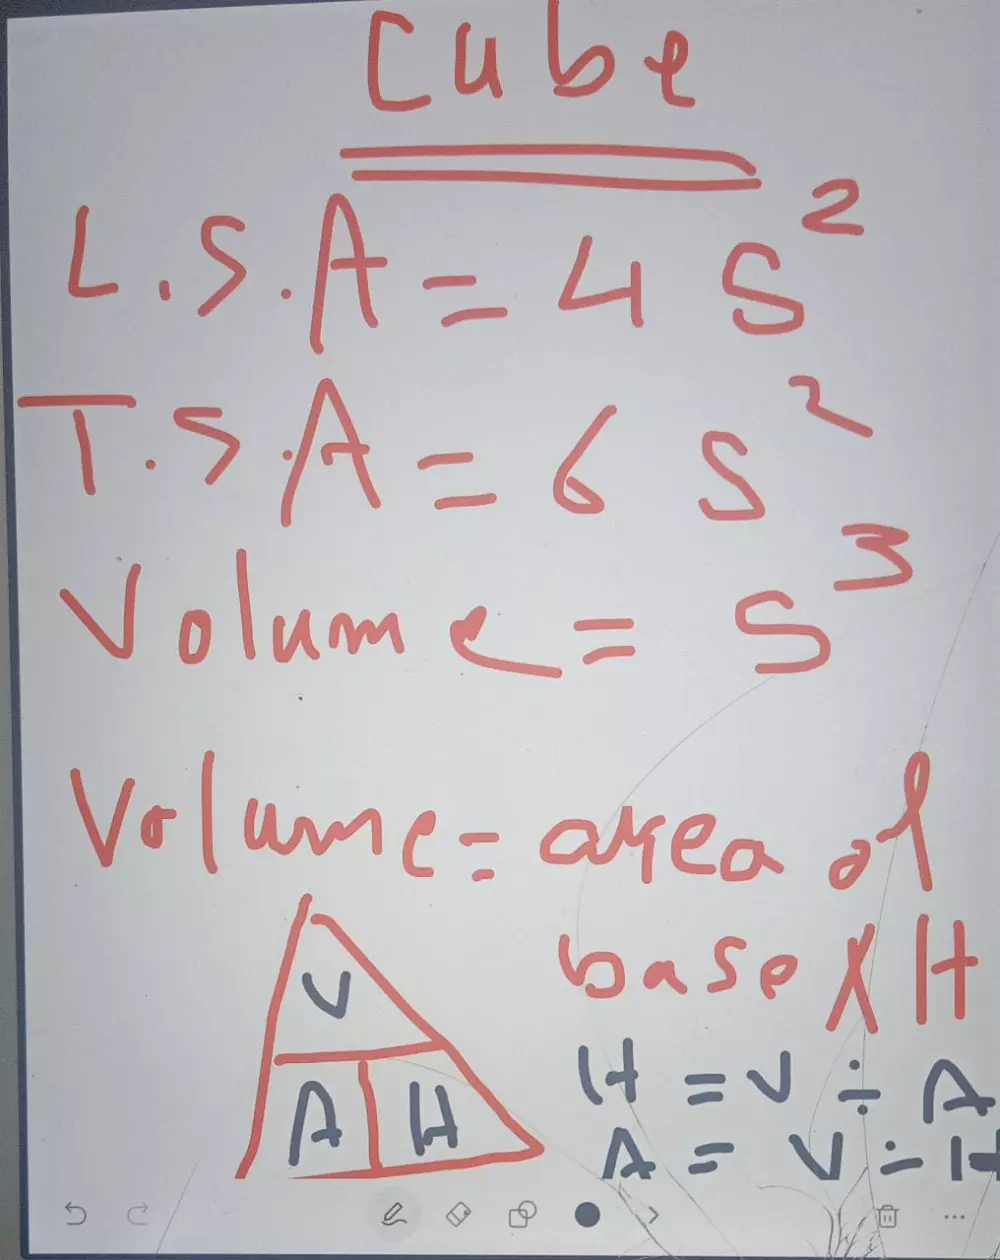 Cube
L.S.A = 4 S²
T.S.A = 6 S²
Volume = S³
Volume = area of
base X H
V
A H
H = V ÷ A
A = V ÷ H